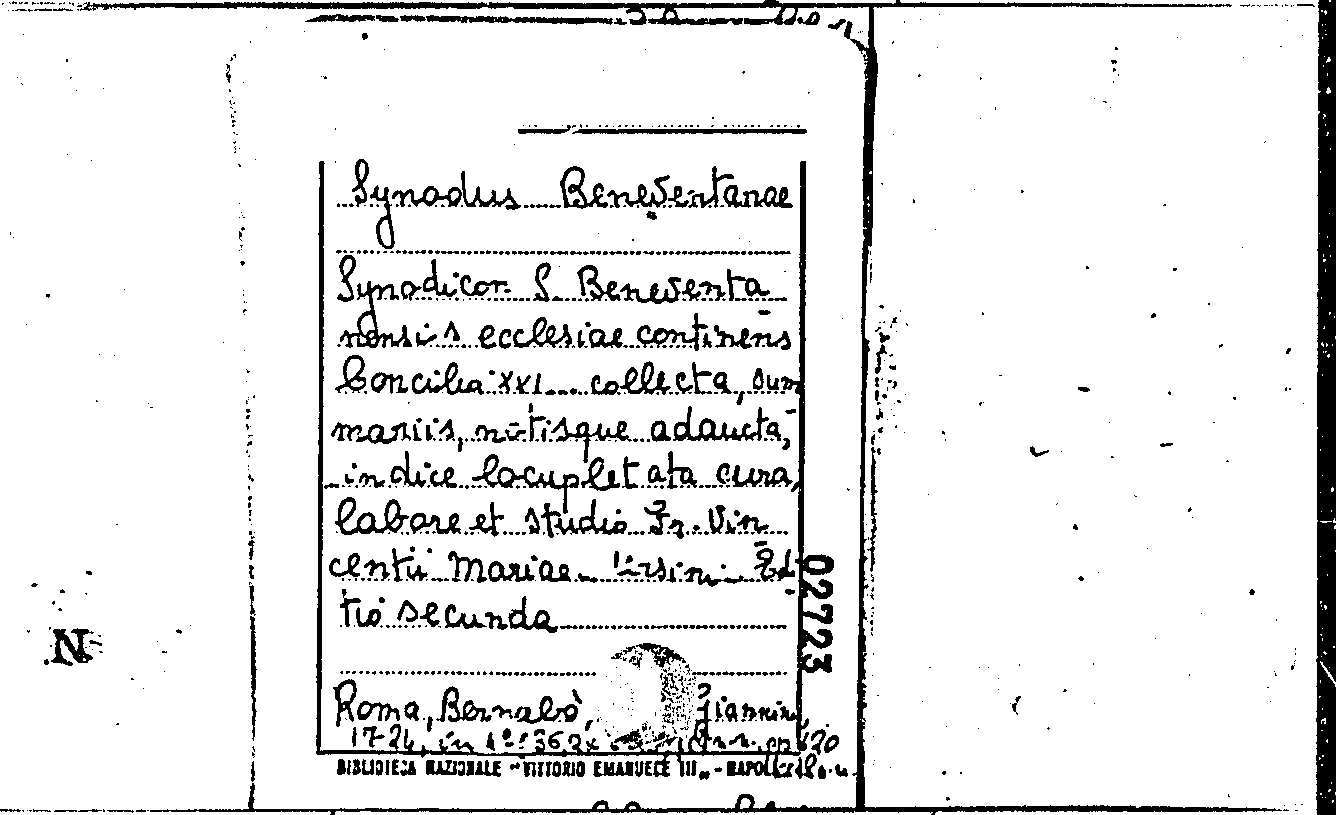 Synodus Beneventanae
Synodicon S. Beneventa
nensis ecclesiae continens
Concilia XXI... collecta, sum
mariis, notisque adaucta,
indice locupletata cura,
labore et studio Fr. Vin
centii Mariae Ursini. Edi
tio secunda
Roma, Bernabò, Giannini,
1724, in 4°: 36,2x
BIBLIOTECA NAZIONALE "VITTORIO EMANUELE III" - NAPOLI
02723
N